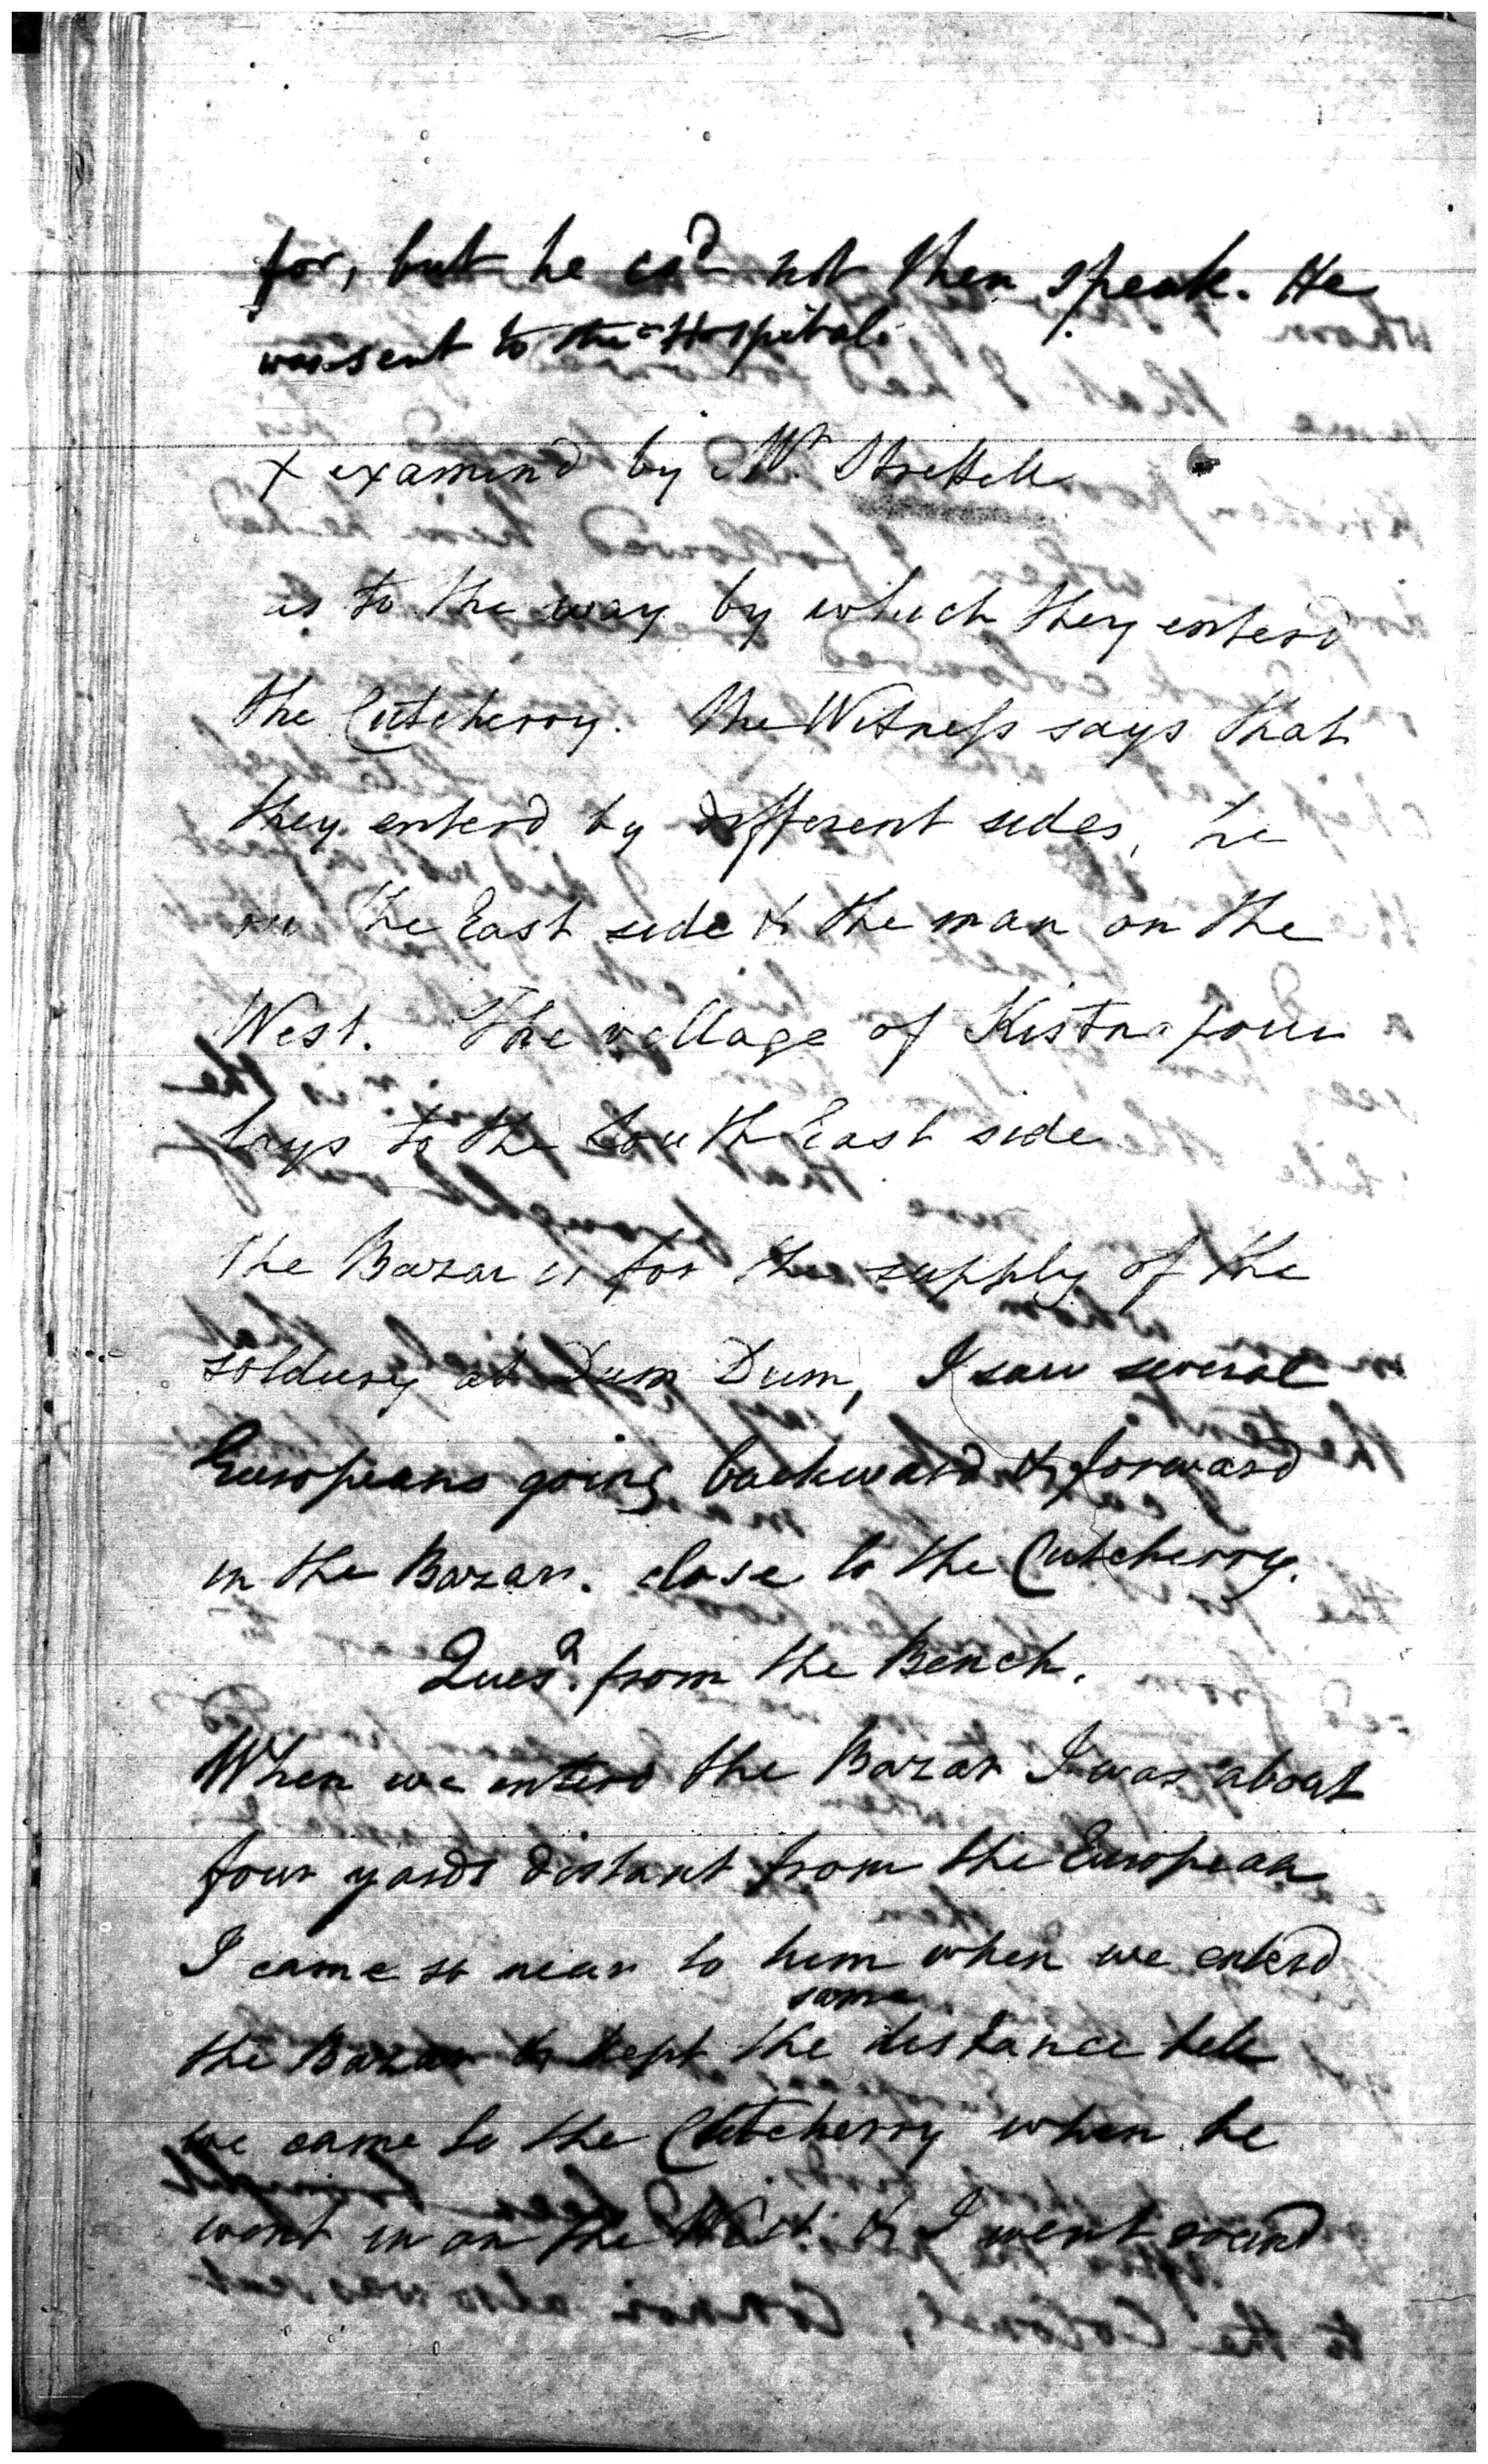 for, but he co.d not then speak. He
was sent to the Hospital.
x examin'd by Mr. Strettell
as to the way by which they enter'd
the Cutcherry. The Witness says that
they enter'd by different sides, he
on the East side & the man on the
West. The village of Kistnapour
lays to the South East side
The Bazar is for the supply of the
soldiery at Dum Dum, I saw several
Europeans going backward & forward
in the Bazar. close to the Cutcherry.
Ques.n from the Bench.
When we enterd the Bazar I was about
four yards distant from the European
I came so near to him when we enterd
the Bazar & kept the same distance till
we came to the Cutcherry when he
went in on the West & I went round